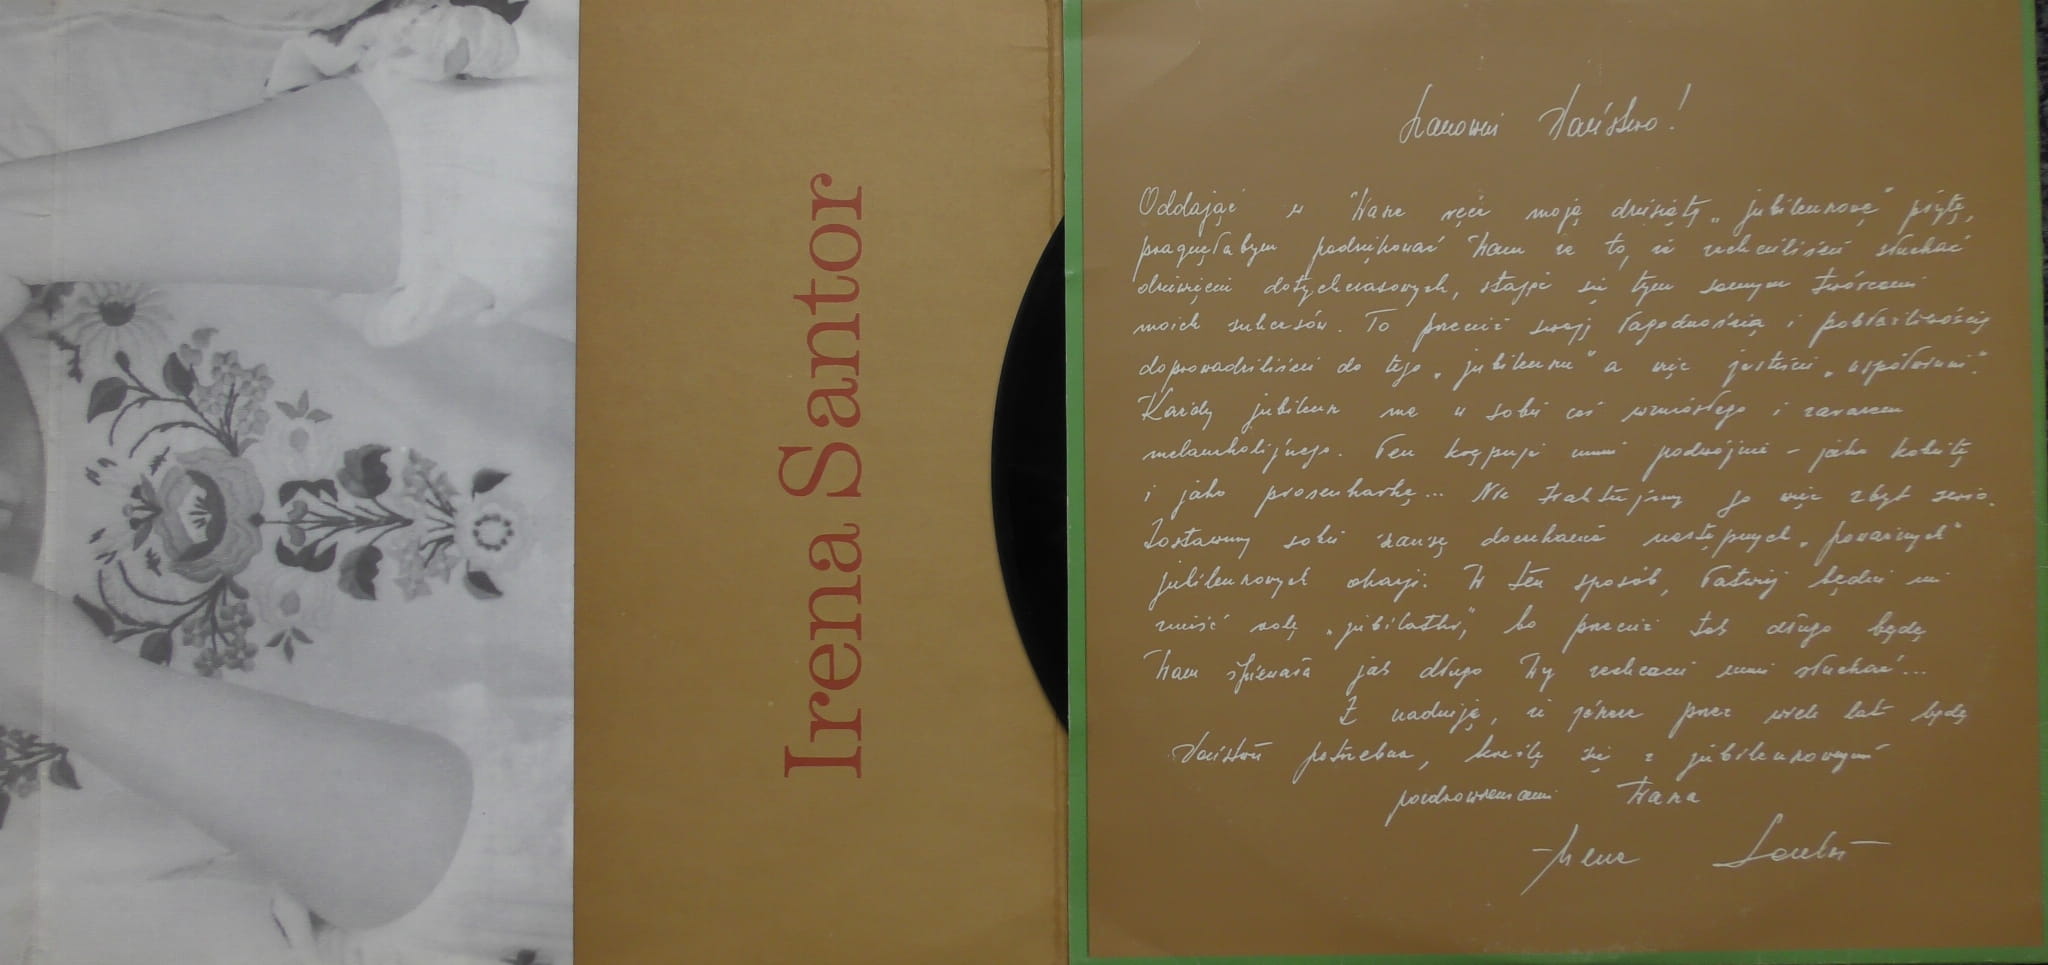 Irena Santor
Szanowni Państwo!
Oddając w Wasze ręce moją dziesiątą „jubileuszową" płytę,
pragnęłabym podziękować Wam za to, że zechcieliście słuchać
dziewięciu dotychczasowych, stając się tym samym twórcami
moich sukcesów. To przecież swoją łagodnością i pobłażliwością
doprowadziliście do tego „jubileuszu" a więc jesteście „współwinni".
Każdy jubileusz ma w sobie coś wzniosłego i zarazem
melancholijnego. Ten krępuje mnie podwójnie – jako kobietę
i jako piosenkarkę... Nie traktujmy go więc zbyt serio.
Zostawmy sobie szansę doczekania następnych „poważnych"
jubileuszowych okazji. W ten sposób, łatwiej będzie mi
znieść rolę „jubilatki", bo przecież tak długo będę
Wam śpiewała jak długo Wy zechcecie mnie słuchać...
Z nadzieją, że jeszcze przez wiele lat będę
Państwu potrzebna, kreślę się z jubileuszowymi
pozdrowieniami Wasza
Irena Santor